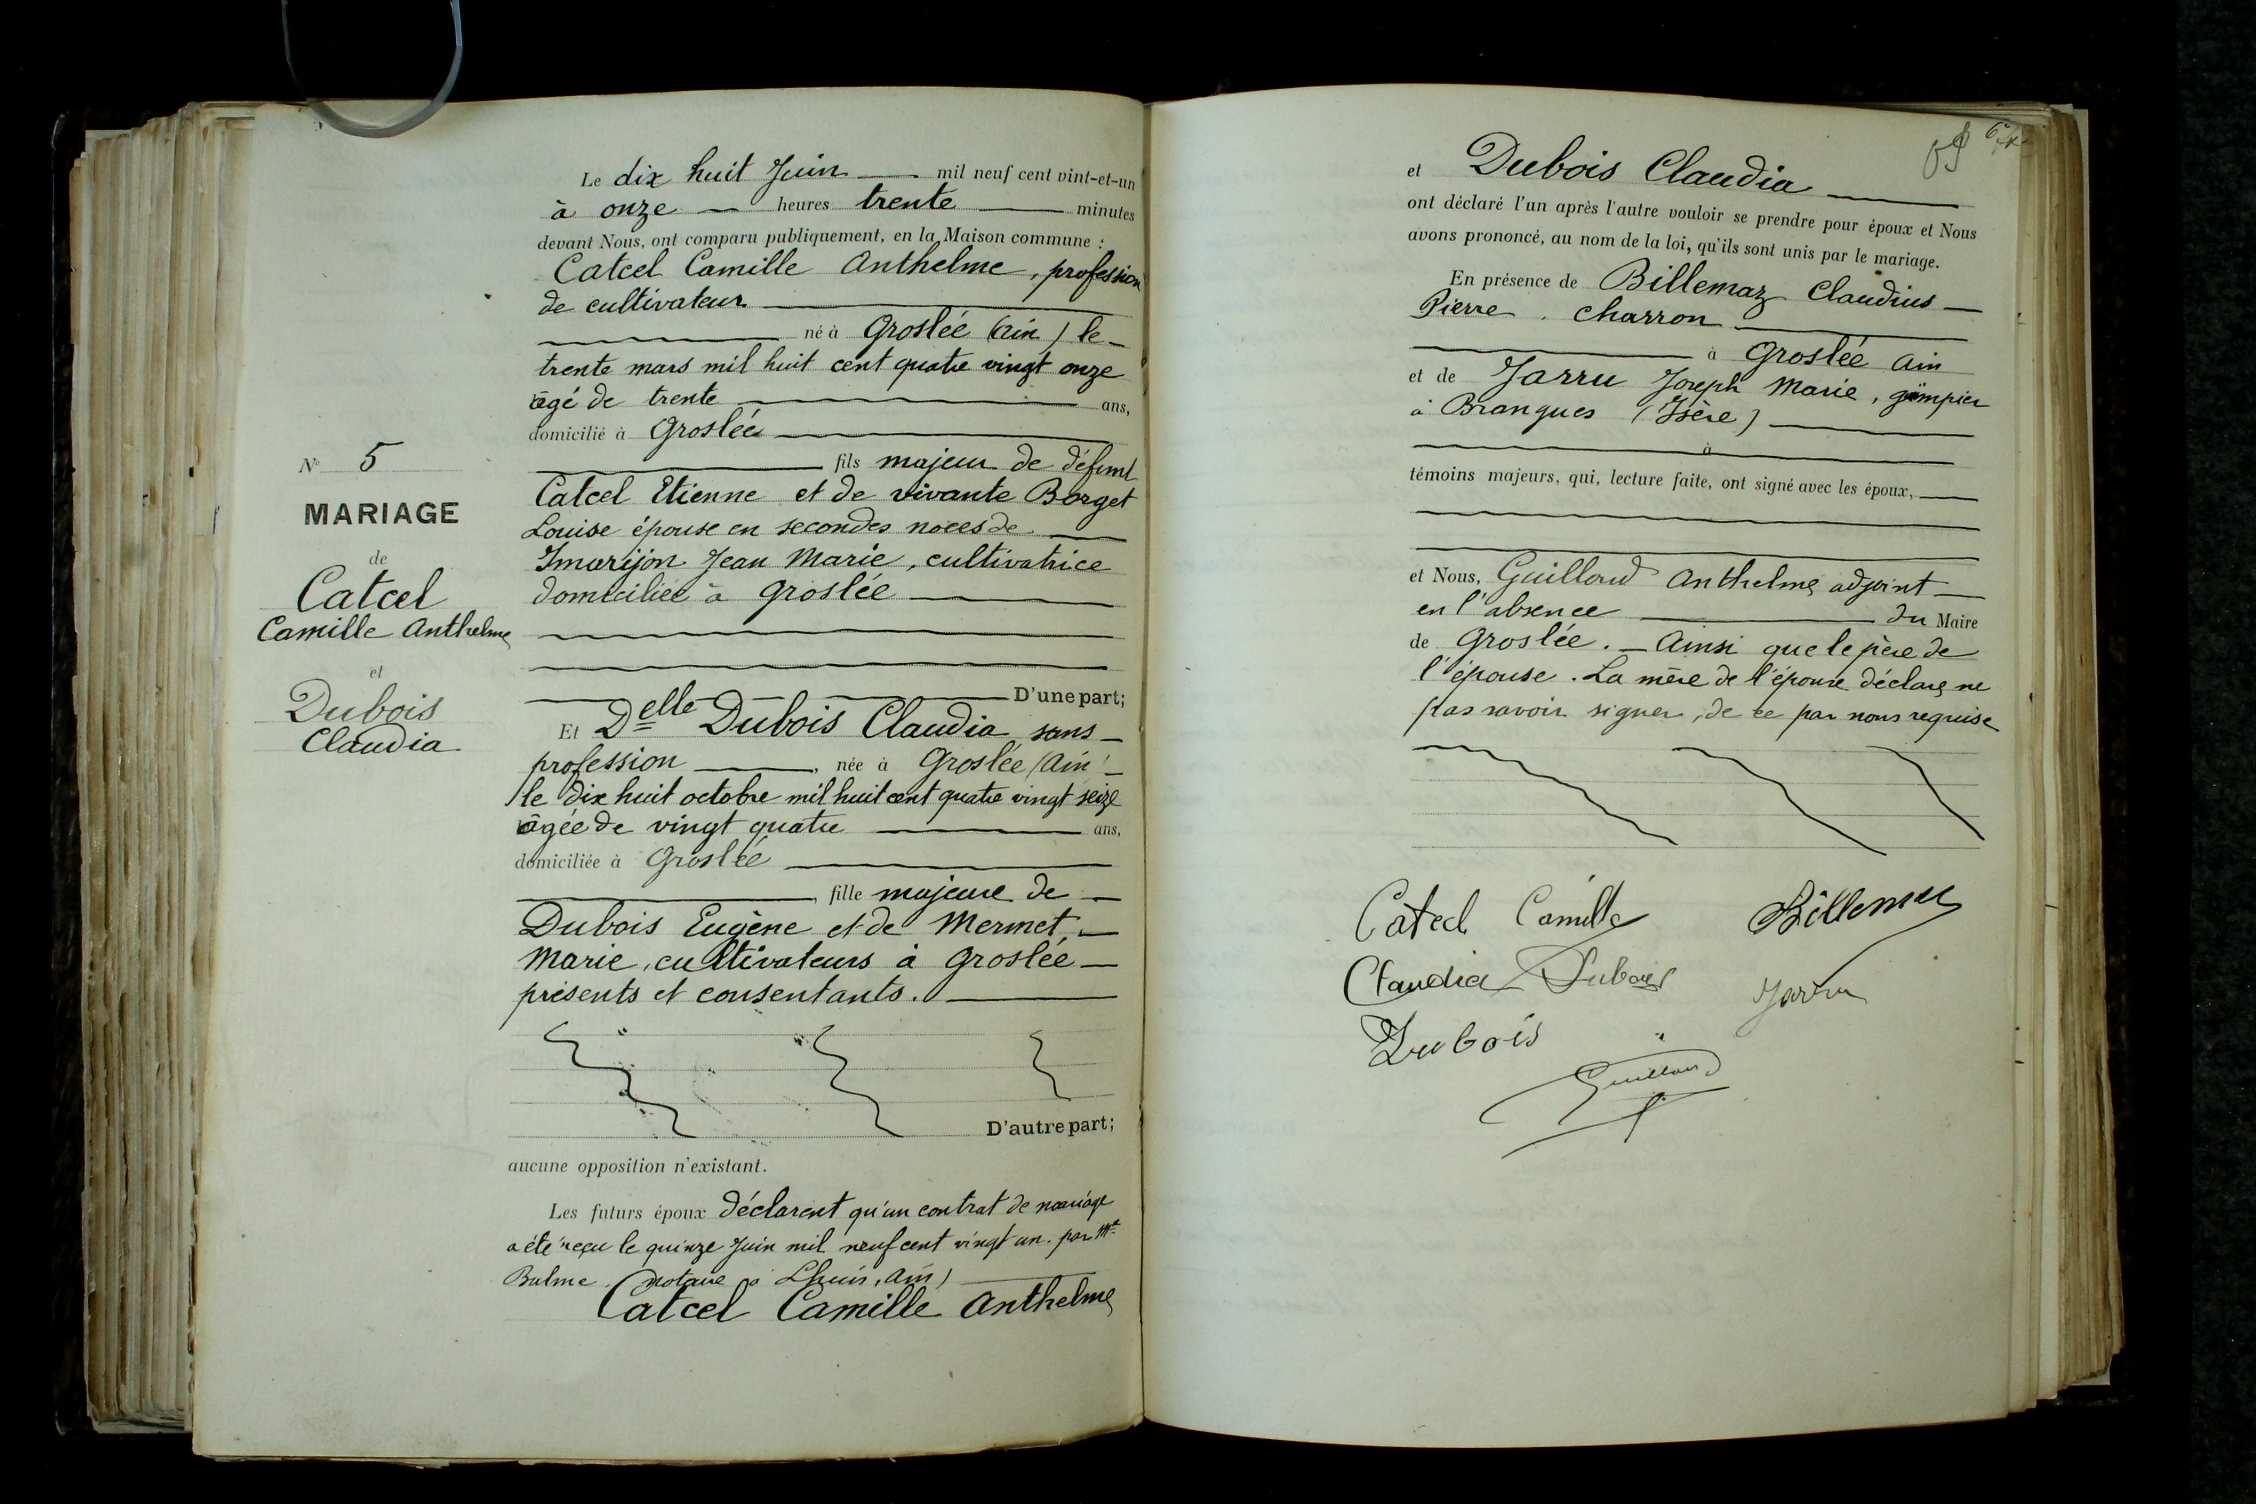 N° 5
MARIAGE
de
Catcel
Camille Anthelme
et
Dubois
Claudia
Le dix huit Juin mil neuf cent vint-et-un
à onze heures trente minutes
devant Nous, ont comparu publiquement, en la Maison commune :
Catcel Camille Anthelme, profession
de cultivateur
né à Groslée (Ain) le
trente mars mil huit cent quatre vingt onze
âgé de trente ans,
domicilié à Groslée
fils majeur de défunt
Catcel Etienne et de vivante Borget
Louise épouse en secondes noces de
Jean Marie, cultivatrice
domiciliée à Groslée
D'une part;
Et Delle Dubois Claudia sans
profession, née à Groslée (Ain)
le dix huit octobre mil huit cent quatre vingt seize
âgée de vingt quatre ans,
domiciliée à Groslée
, fille majeure de
Dubois Eugène et de Mermet
Marie, cultivateurs à Groslée
présents et consentants.
D'autre part;
aucune opposition n'existant.
Les futurs époux déclarent qu'un contrat de mariage
a été reçu le quinze Juin mil neuf cent vingt un par Mt
Balme notaire à Lhuis, Ain)
Catcel Camille Anthelme
69
et Dubois Claudia
ont déclaré l'un après l'autre vouloir se prendre pour époux et Nous
avons prononcé, au nom de la loi, qu'ils sont unis par le mariage.
En présence de Billemaz Claudius
Pierre. charron
à Groslée Ain
et de Jarru Joseph Marie, guimpier
à Brangues (Isère)
à
témoins majeurs, qui, lecture faite, ont signé avec les époux,
et Nous, Guilloud Anthelme adjoint
en l'absence du Maire
de Groslée. Ainsi que le père de
l'épouse. La mère de l'épouse déclare ne
pas savoir signer, de ce par nous requise
Catcel Camille Billemaz
Claudia Dubois Jarru
Dubois
Guilloud